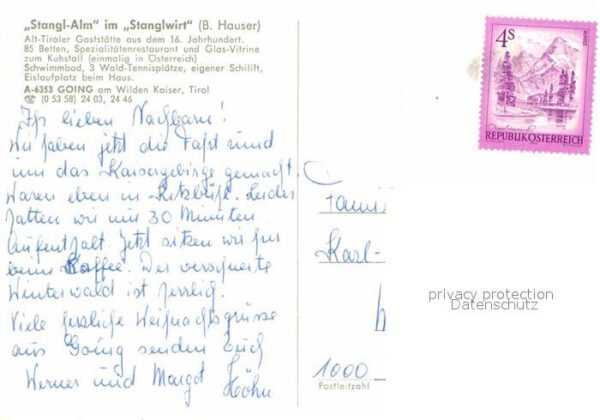 „Stangl-Alm“ im „Stanglwirt“ (B. Hauser)
Alt-Tiroler Gaststätte aus dem 16. Jahrhundert.
85 Betten, Spezialitätenrestaurant und Glas-Vitrine
zum Kuhstall (einmalig in Österreich)
Schwimmbad, 3 Wald-Tennisplätze, eigener Schilift,
Eislaufplatz beim Haus.
A-6353 GOING am Wilden Kaiser, Tirol
☎ (0 53 58) 24 03, 24 46
Ihr lieben Nachbarn!
Wir haben jetzt die Fahrt rund
um das Kaisergebirge gemacht.
Waren eben in Kitzbühel. Leider
hatten wir nur 30 Minuten
Aufenthalt. Jetzt sitzen wir hier
beim Kaffee. Der verschneite
Winterwald ist herrlich.
Viele herzliche Weihnachtsgrüsse
aus Going senden Euch
Werner und Margot Höhn
4S
REPUBLIK ÖSTERREICH
Fami
Karl-
1000
Postleitzahl
privacy protection
Datenschutz